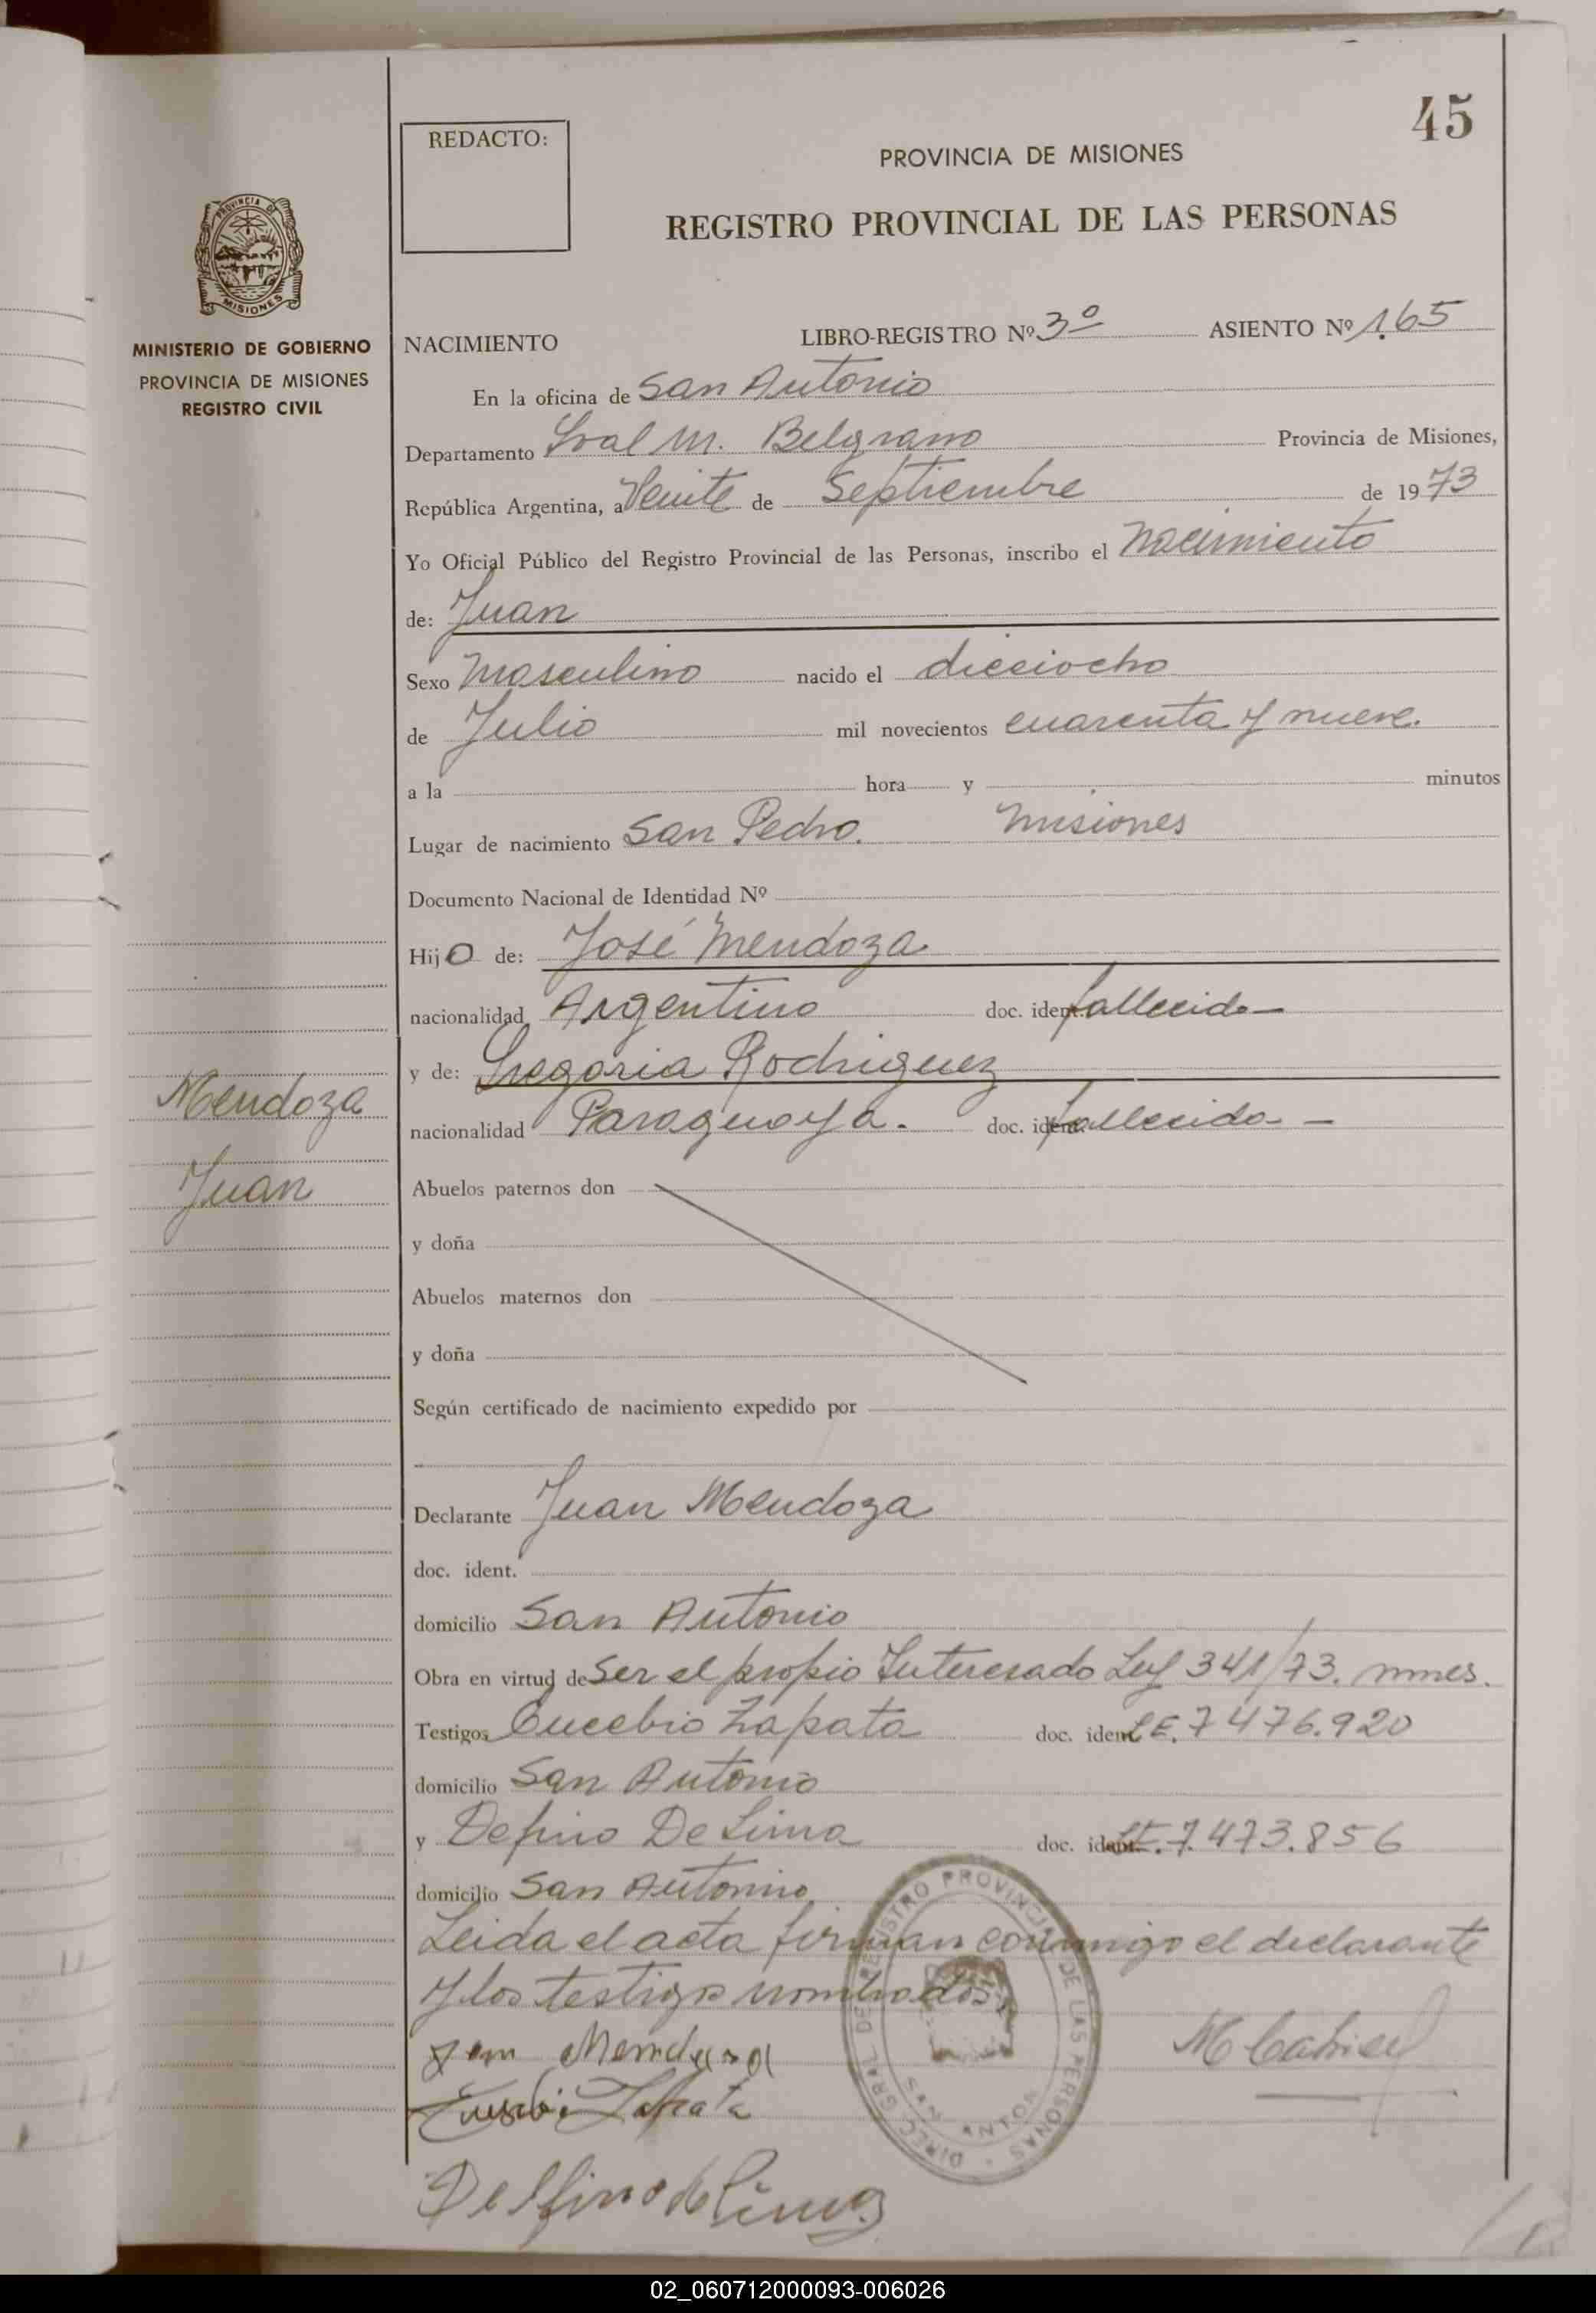 45
REDACTO:
PROVINCIA DE MISIONES
REGISTRO PROVINCIAL DE LAS PERSONAS
PROVINCIA DE
MISIONES
MINISTERIO DE GOBIERNO
PROVINCIA DE MISIONES
REGISTRO CIVIL
NACIMIENTO LIBRO-REGISTRO Nº 3º ASIENTO Nº 165
En la oficina de San Antonio
Departamento Gral M. Belgrano Provincia de Misiones,
República Argentina, a Veinte de Septiembre de 1973
Yo Oficial Público del Registro Provincial de las Personas, inscribo el Nacimiento
de: Juan
Sexo Masculino nacido el dieciocho
de Julio mil novecientos cuarenta y nueve.
a la hora y minutos
Lugar de nacimiento San Pedro. Misiones
Documento Nacional de Identidad Nº
Hijo de: José Mendoza
nacionalidad Argentino doc. ident. fallecido
y de: Gregoria Rodriguez
Mendoza
nacionalidad Paraguaya. doc. ident. fallecida
Juan
Abuelos paternos don
y doña
Abuelos maternos don
y doña
Según certificado de nacimiento expedido por
Declarante Juan Mendoza
doc. ident.
domicilio San Antonio
Obra en virtud de Ser el propio Interesado Ley 341/73. mnes.
Testigos Eucebio Zapata doc. ident. LE. 7476.920
domicilio San Antonio
y Defino De Lima doc. ident. LE. 7.473.856
domicilio San Antonino
Leida el acta firman conmigo el declarante
y los testigos nombrados
DIREC. GRAL. DE REGISTRO PROVINCIAL DE LAS PERSONAS
SAN ANTON
Mendoza
Zapata
Delfino de Lima
02_060712000093-006026